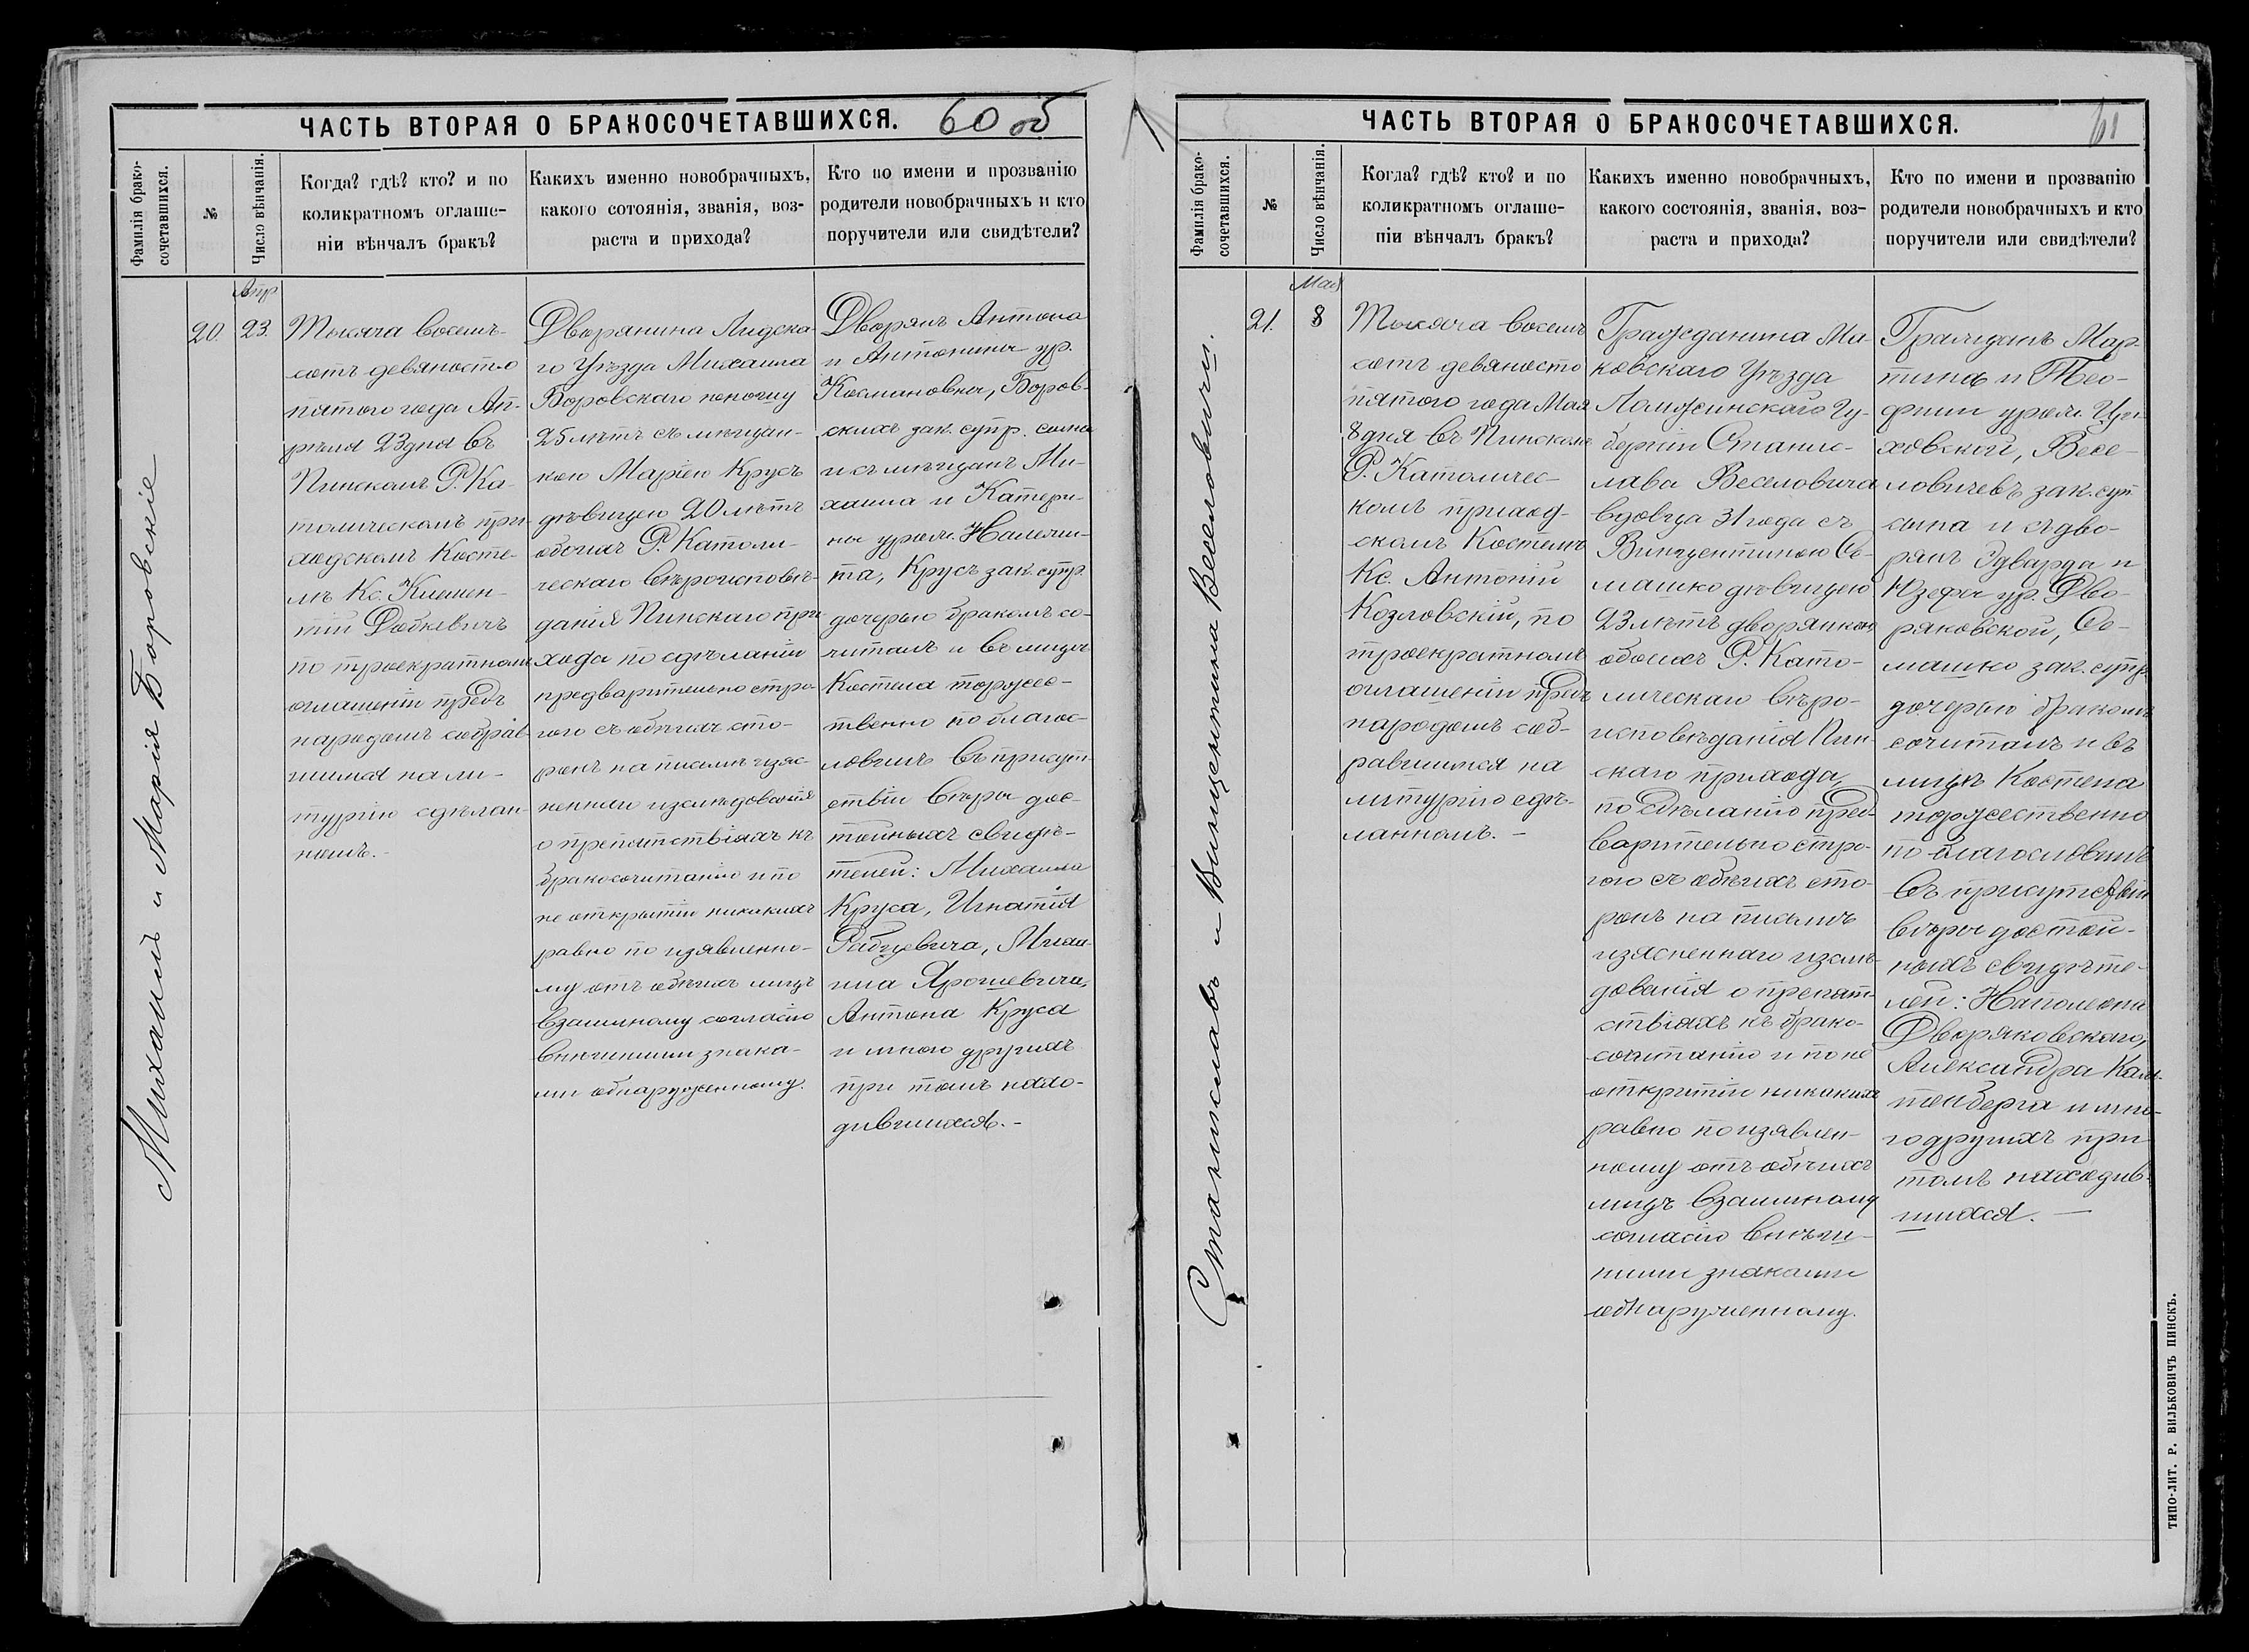 ЧАСТЬ ВТОРАЯ О БРАКОСОЧЕТАВШИХСЯ. 60 об
Фамилія брако-
сочетавшихся.
№
Число вѣнчанія.
Когда? гдѣ? кто? и по
коликратномъ оглаше-
ніи вѣнчалъ бракъ?
Какихъ именно новобрачныхъ,
какого сотоянія, званія, воз-
раста и прихода?
Кто по имени и прозванію
родители новобрачныхъ и кто
поручители или свидѣтели?
Михаилъ и Марія Боровскіе
20.
Апр
23.
Тысяча восемь-
сотъ девяносто
пятого года Ап-
рѣля 23 дня въ
Пинскомъ Р. Ка-
толическомъ при-
ходскомъ Косте-
лѣ Кс. Клемен-
тій Добкевичъ
по троекратномъ
оглашеніи предъ
народомъ собрав-
шимся на ли-
тургію сдѣлан-
номъ.-
Дворянина Лидска-
го Уѣзда Михаила
Боровскаго юношу
25 лѣтъ съ мѣщан-
кою Маріею Крусъ
дѣвицею 20 лѣтъ
обоихъ Р. Католи-
ческаго вѣроисповѣ-
данія Пинскаго при-
хода по сдѣланіи
предварительно стро-
гого съ обѣихъ сто-
ронъ на письмѣ изяс-
неннаго изслѣдованія
о препятствіяхъ къ
бракосочитанію и по
не открытіи никакихъ
равно по изявленно-
му отъ обѣихъ лицъ
взаимному согласію
внѣшними знака-
ми обнаруженному.
Дворянъ Антона
и Антонины ур.
Космановны, Боров-
скихъ зак. супр. сына
и съ мѣщанъ Ми-
хаила и Катери-
ны урож.
та, Крусъ зак. супр.
дочерью бракомъ со-
читалъ и въ лицѣ
Костела торжес-
твенно поблагос-
ловилъ въ присут-
ствіи вѣры дос-
тойныхъ свидѣ-
телей: Михаила
Круса, Игнатія
Рабцевича,
Ярошевича,
Антона Круса
и много другихъ
при томъ нахо-
дившихся.-
ЧАСТЬ ВТОРАЯ О БРАКОСОЧЕТАВШИХСЯ. 61
Фамилія брако-
сочетавшихся.
№
Число вѣнчанія.
Когда? гдѣ? кто? и по
коликратномъ оглаше-
ніи вѣнчалъ бракъ?
Какихъ именно новобрачныхъ,
какого состоянія, званія, воз-
раста и прихода?
Кто по имени и прозванію
родители новобрачныхъ и кто
поручители или свидѣтели?
Станиславъ и Винцентина Веселовичи.
21.
Мая
8
Тысяча восемь
сотъ девяносто
пятого года Мая
8 дня въ Пинскомъ
Р. Католичес-
комъ приход-
скомъ Костелѣ
Кс. Антоній
Козловскій, по
троекратномъ
оглашеніи предъ
народомъ соб-
равшимся на
литургію сдѣ-
ланномъ.-
Гражданина Ма-
ковскаго Уѣзда
Ломжинскаго Гу-
берніи Станис-
лава Веселовича
вдовца 31 года съ
Винцентиною Со-
машко дѣвицею
23 лѣтъ дворянкою,
обоихъ Р. Като-
лическаго вѣро-
исповѣданія Пин-
скаго прихода,
по сдѣланію пред-
варительно стро-
гого съ обѣихъ сто-
ронъ на письмѣ
изясненнаго изслѣ-
дованія о препят-
ствіяхъ къ брако-
сочитанію и по не
открытіи никакихъ
равно по изявлен-
ному отъ обѣихъ
лицъ взаимному
согласію внѣш-
ними знаками
обнаруженному.
Гражданъ Мар-
тина и Тео-
філи урож. Ци-
ховской, Весе-
ловичевъ зак. суп
сына и съ дво-
рянъ Эдварда и
Юзефы ур. Дво-
ряковской, Со-
машко зак. супр.
дочерью бракомъ
сочиталъ и въ
лицѣ Костела
торжественно
по благословилъ
въ присутствіи
вѣры достой-
ныхъ свидѣте-
лей: Наполеона
Дворяковскаго,
Александра Каль-
тенберга и мно-
го другихъ при
томъ находив-
шихся.-
ТИПО-ЛИТ. Р. ВИЛЬКОВИЧЪ ПИНСКЪ.